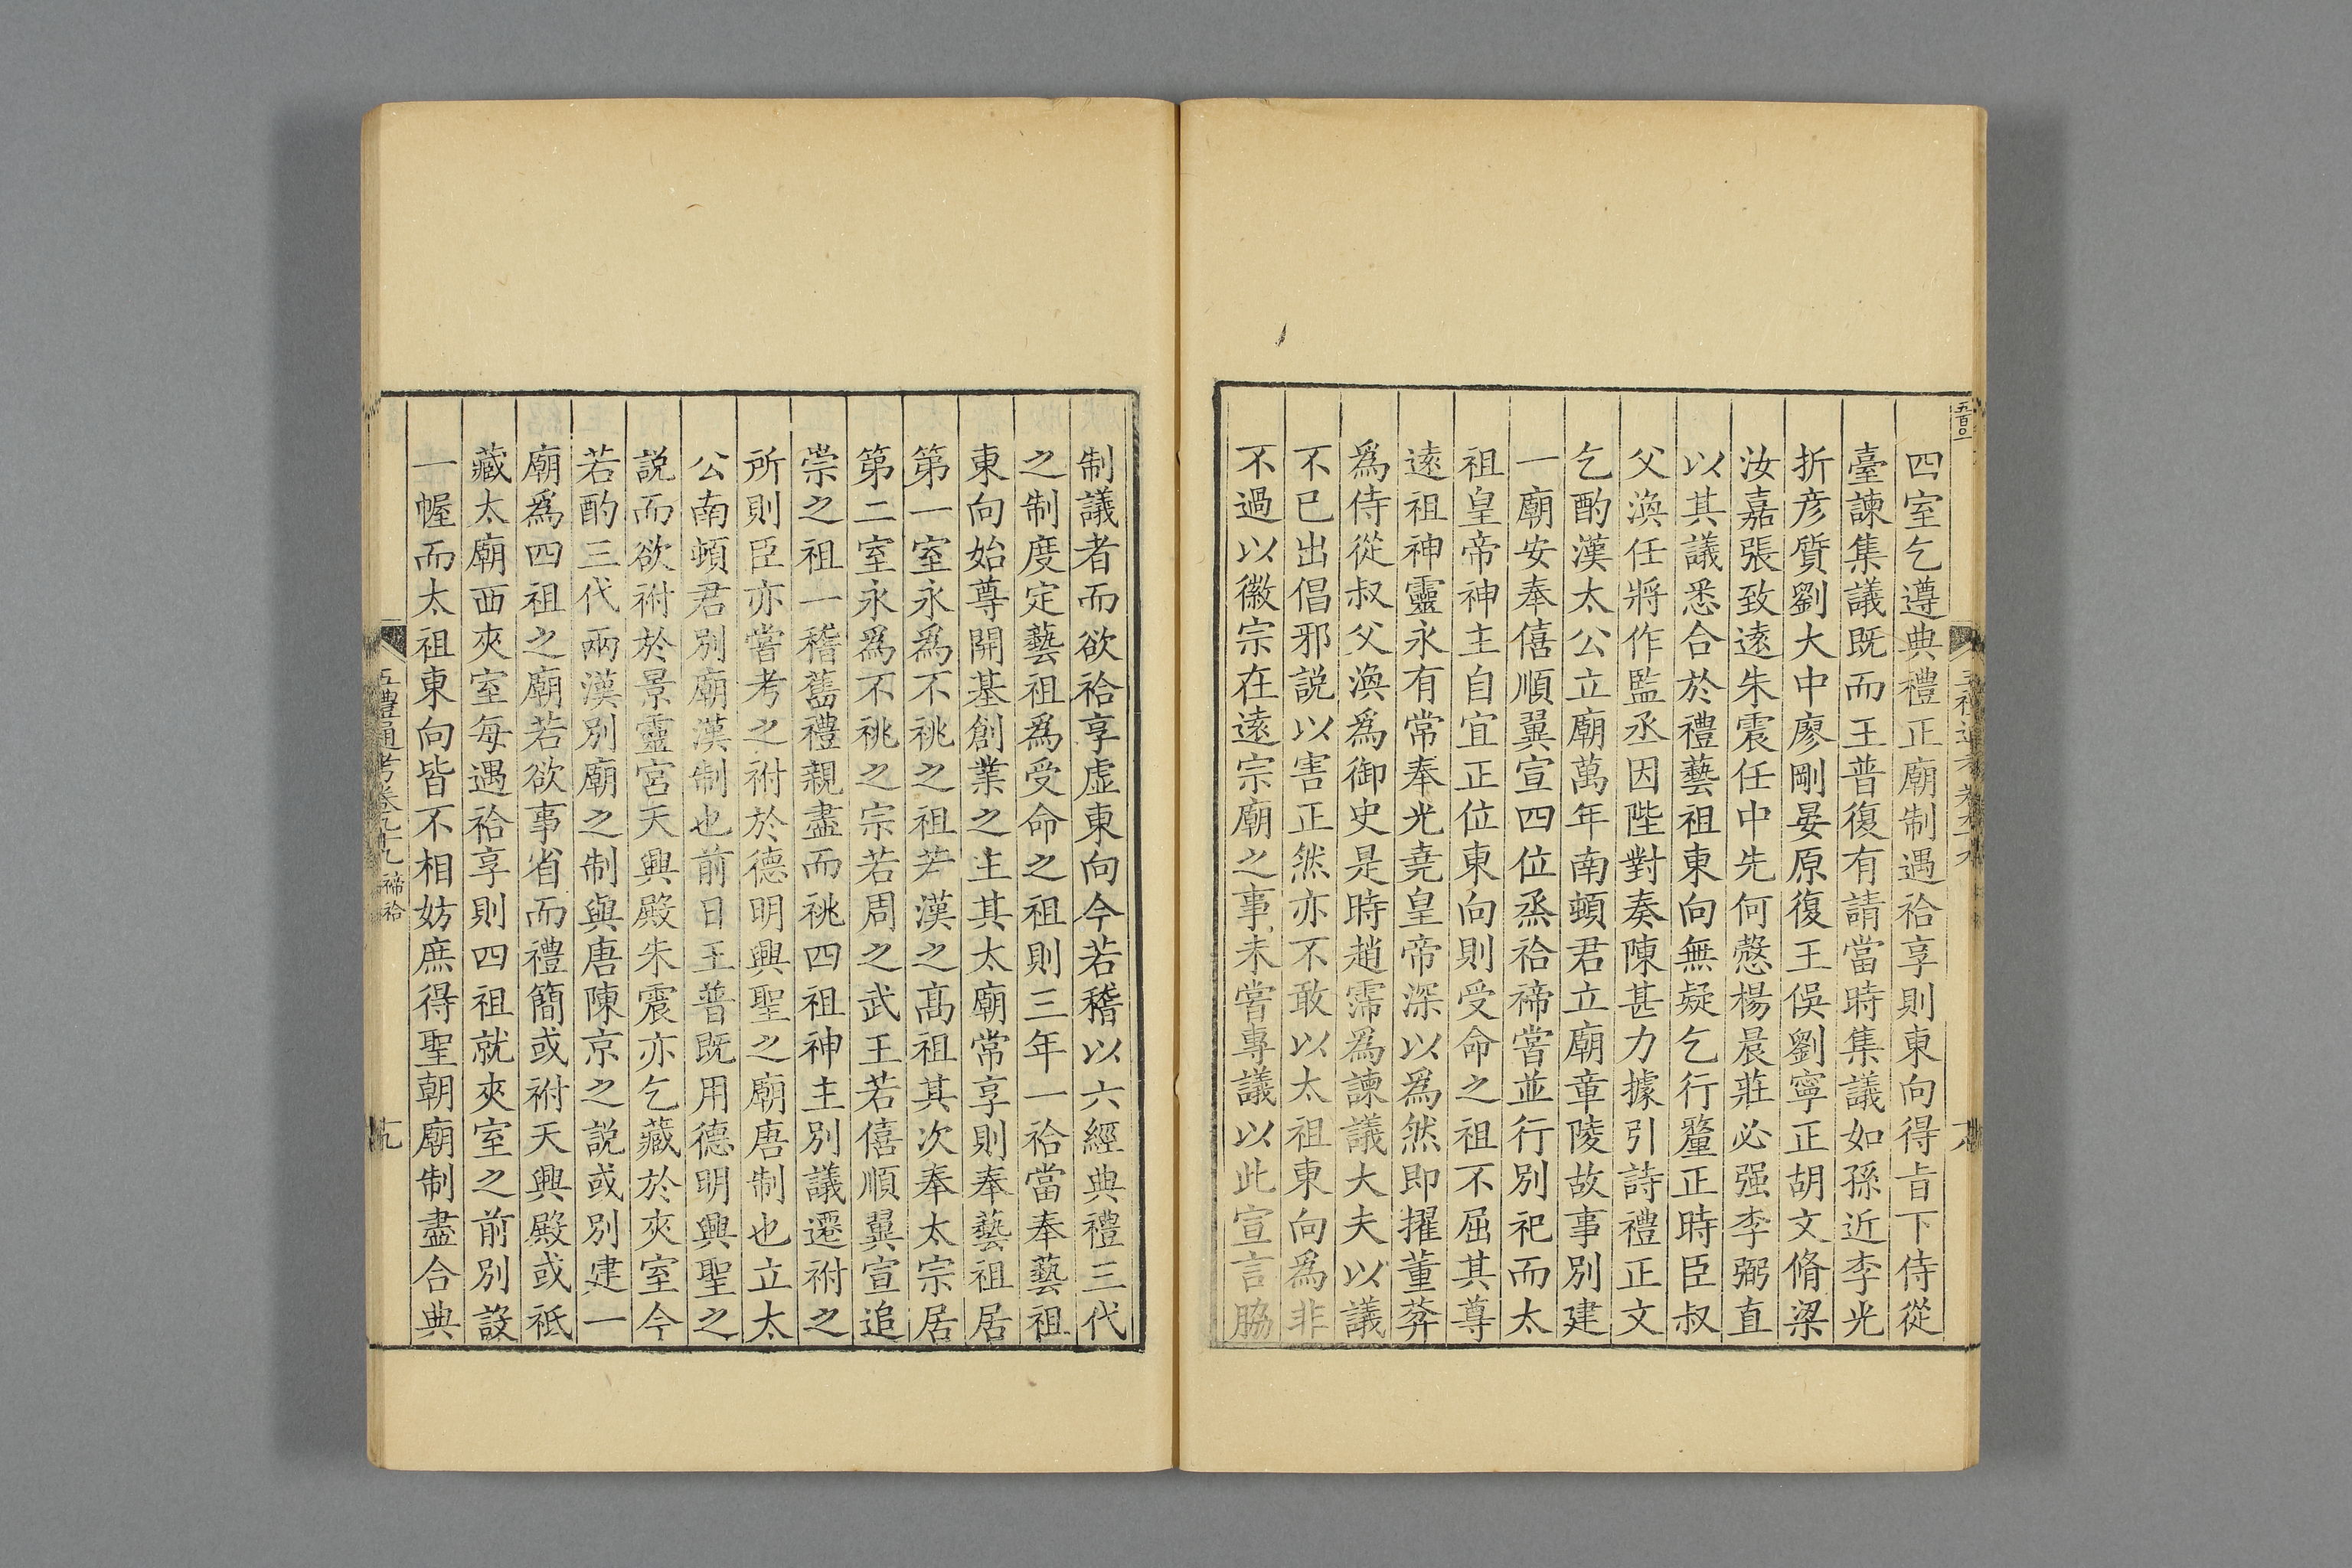 五百〇一
四室乞遵典禮正廟制遇祫享則東向得旨下侍從
臺諫集議既而王普復有請當時集議如孫近李光
折彦質劉大中廖剛晏原復王俁劉寧正胡文脩梁
汝嘉張致遠朱震任申先何慤楊晨莊必强李弼直
以其議悉合於禮藝祖東向無疑乞行釐正時臣叔
父渙任將作監丞因陛對奏陳甚力據引詩禮正文
乞酌漢太公立廟萬年南頓君立廟章陵故事別建
一廟安奉僖順翼宣四位烝祫禘嘗並行別祀而太
祖皇帝神主自宜正位東向則受命之祖不屈其尊
遠祖神靈永有常奉光堯皇帝深以爲然即擢董弅
爲侍從叔父渙爲御史是時趙霈爲諫議大夫以議
不已出倡邪説以害正然亦不敢以太祖東向爲非
不過以徽宗在遠宗廟之事未嘗專議以此宣言脇
制議者而欲祫享虚東向今若稽以六經典禮三代
之制度定藝祖爲受命之祖則三年一祫當奉藝祖
東向始尊開基創業之主其太廟常享則奉藝祖居
第一室永爲不祧之祖若漢之髙祖其次奉太宗居
第二室永爲不祧之宗若周之武王若僖順翼宣追
崇之祖一稽舊禮親盡而祧四祖神主別議遷祔之
所則臣亦嘗考之祔於德明興聖之廟唐制也立太
公南頓君別廟漢制也前日王普既用德明興聖之
説而欲祔於景靈宮天興殿朱震亦乞藏於夾室今
若酌三代兩漢別廟之制與唐陳京之説或別建一
廟爲四祖之廟若欲事省而禮簡或祔天興殿或祗
藏太廟西夾室每遇祫享則四祖就夾室之前別設
一幄而太祖東向皆不相妨庶得聖朝廟制盡合典
五禮通考卷九十九 禘祫
十九